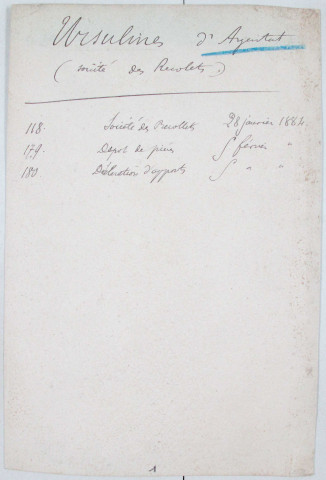 Ursulines d'Argentat
(société des Recolets)
118. Société des Recollets 28 janvier 1884
179. Depot de pièces 5 février "
180 Déclaration d'apports 5 " "
1